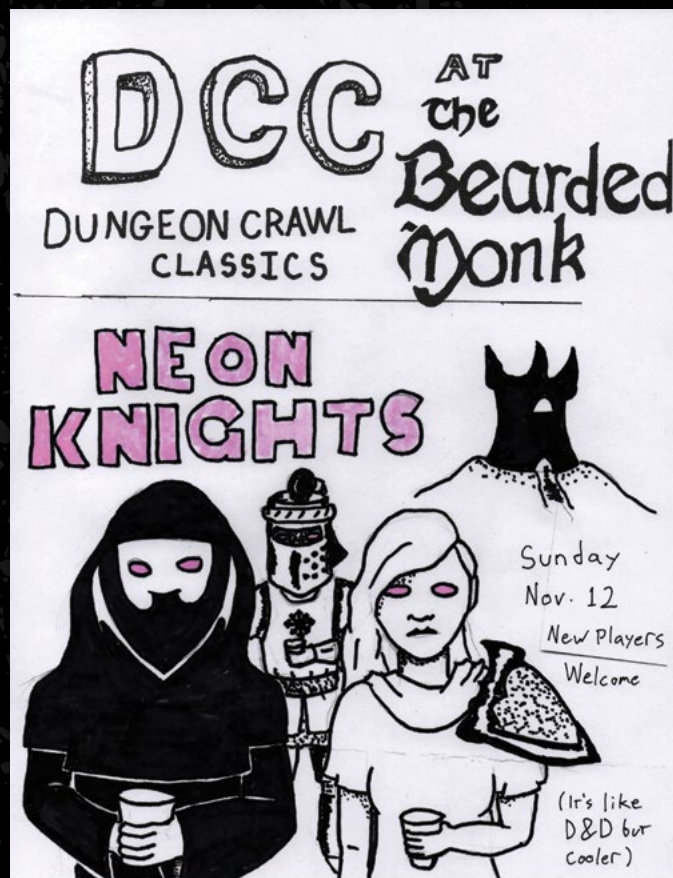 DCC
DUNGEON CRAWL
CLASSICS
AT
The
Bearded
Monk
NEON
KNIGHTS
Sunday
Nov. 12
New Players
Welcome
(It's like
D&D but
cooler)